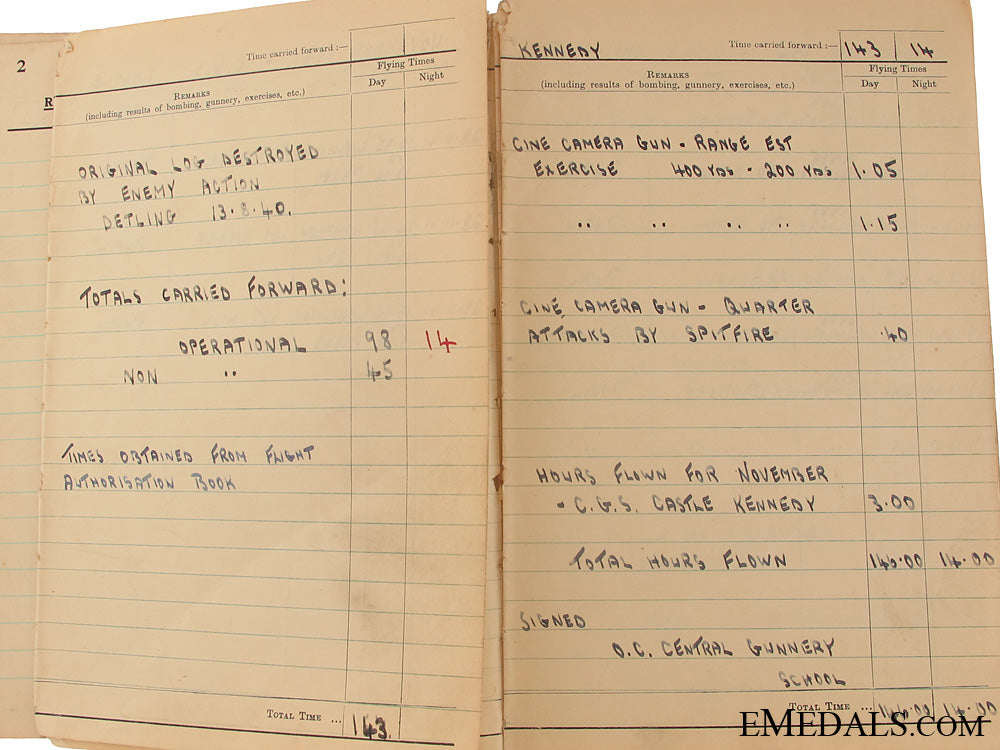 2
R
Time carried forward :—
Remarks
(including results of bombing, gunnery, exercises, etc.)
Flying Times
Day Night
ORIGINAL LOG DESTROYED
BY ENEMY ACTION
DETLING 13.8.40.
TOTALS CARRIED FORWARD:
OPERATIONAL 98 14
NON " 45
TIMES OBTAINED FROM FLIGHT
AUTHORISATION BOOK
Total Time ... 143.
KENNEDY Time carried forward :— 143 14
Remarks
(including results of bombing, gunnery, exercises, etc.)
Flying Times
Day Night
CINE CAMERA GUN - RANGE EST
EXERCISE 400 YDS - 200 YDS 1.05
" " " " 1.15
CINE CAMERA GUN - QUARTER
ATTACKS BY SPITFIRE .40
HOURS FLOWN FOR NOVEMBER
- C.G.S. CASTLE KENNEDY 3.00
TOTAL HOURS FLOWN 146.00 14.00
SIGNED
O.C. CENTRAL GUNNERY
SCHOOL
Total Time ... 146.00 14.00
EMEDALS.COM